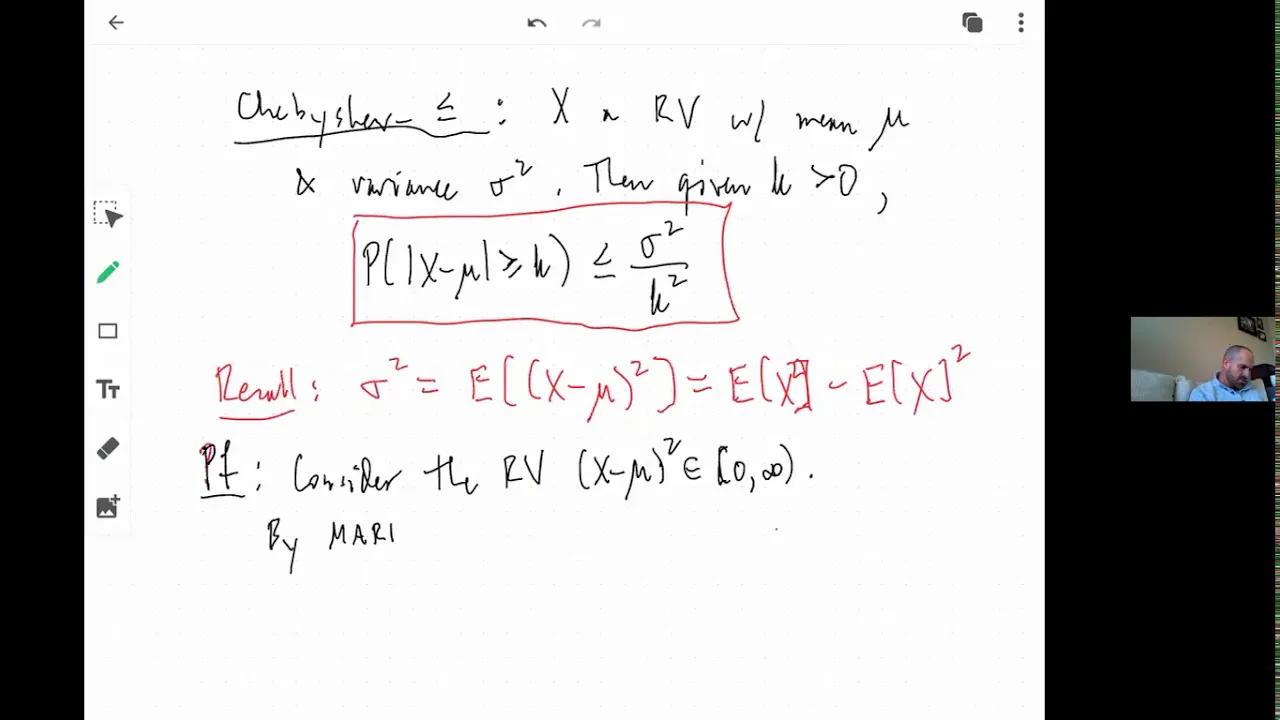 Chebyshev ≤ : X a RV w/ mean μ
& variance σ². Then given k > 0,
P(|X-μ| ≥ k) ≤ σ²/k²
Recall: σ² = E[(X-μ)²] = E[X²] - E[X]²
Pf: Consider the RV (X-μ)² ∈ [0,∞).
By MARI
Tт